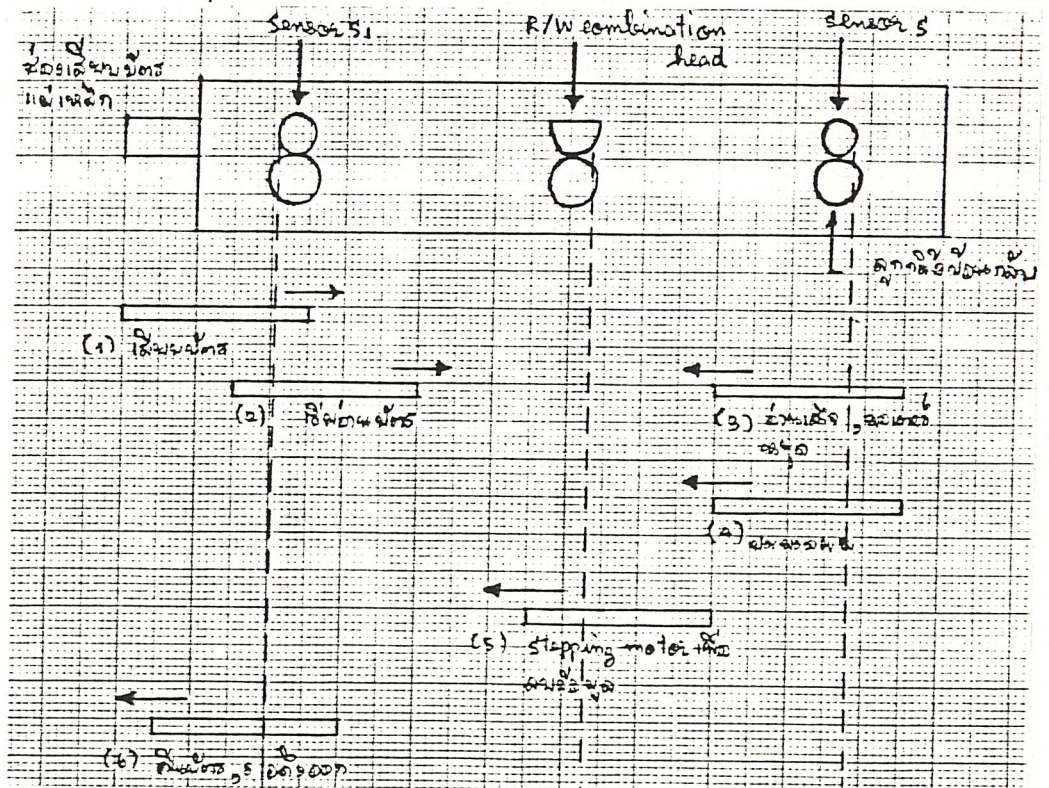 sensor S₁
R/W combination
head
sensor S
ช่องเสียบบัตร
แม่เหล็ก
ลูกกลิ้งป้อนกลับ
(1) เสียบบัตร
(2) เริ่มอ่านบัตร
(3) อ่านเสร็จ, มอเตอร์
หยุด
(4) ประมวลผล
(5) stepping motor เพื่อ
ลบข้อมูล
(6) คืนบัตร,